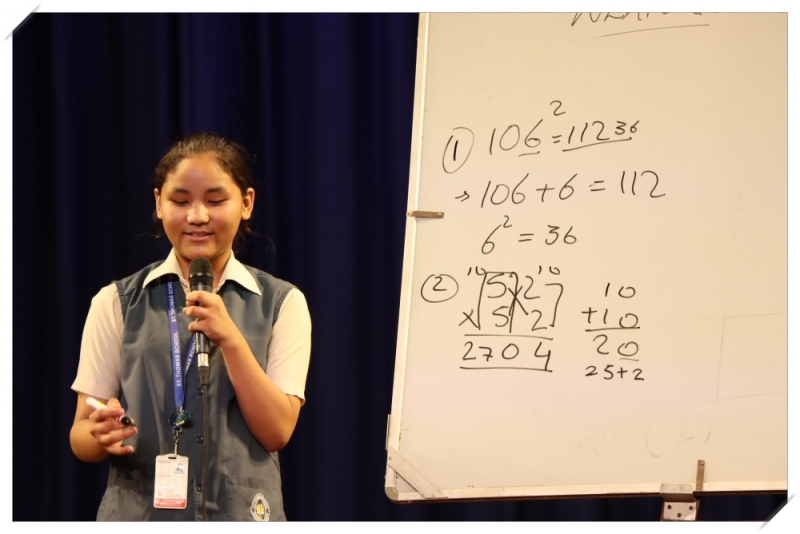 ① 106² = 11236
→ 106 + 6 = 112
6² = 36
② 10 10
52
× 52
2704
10
+10
20
25+2
ST. THOMAS SCHOOL